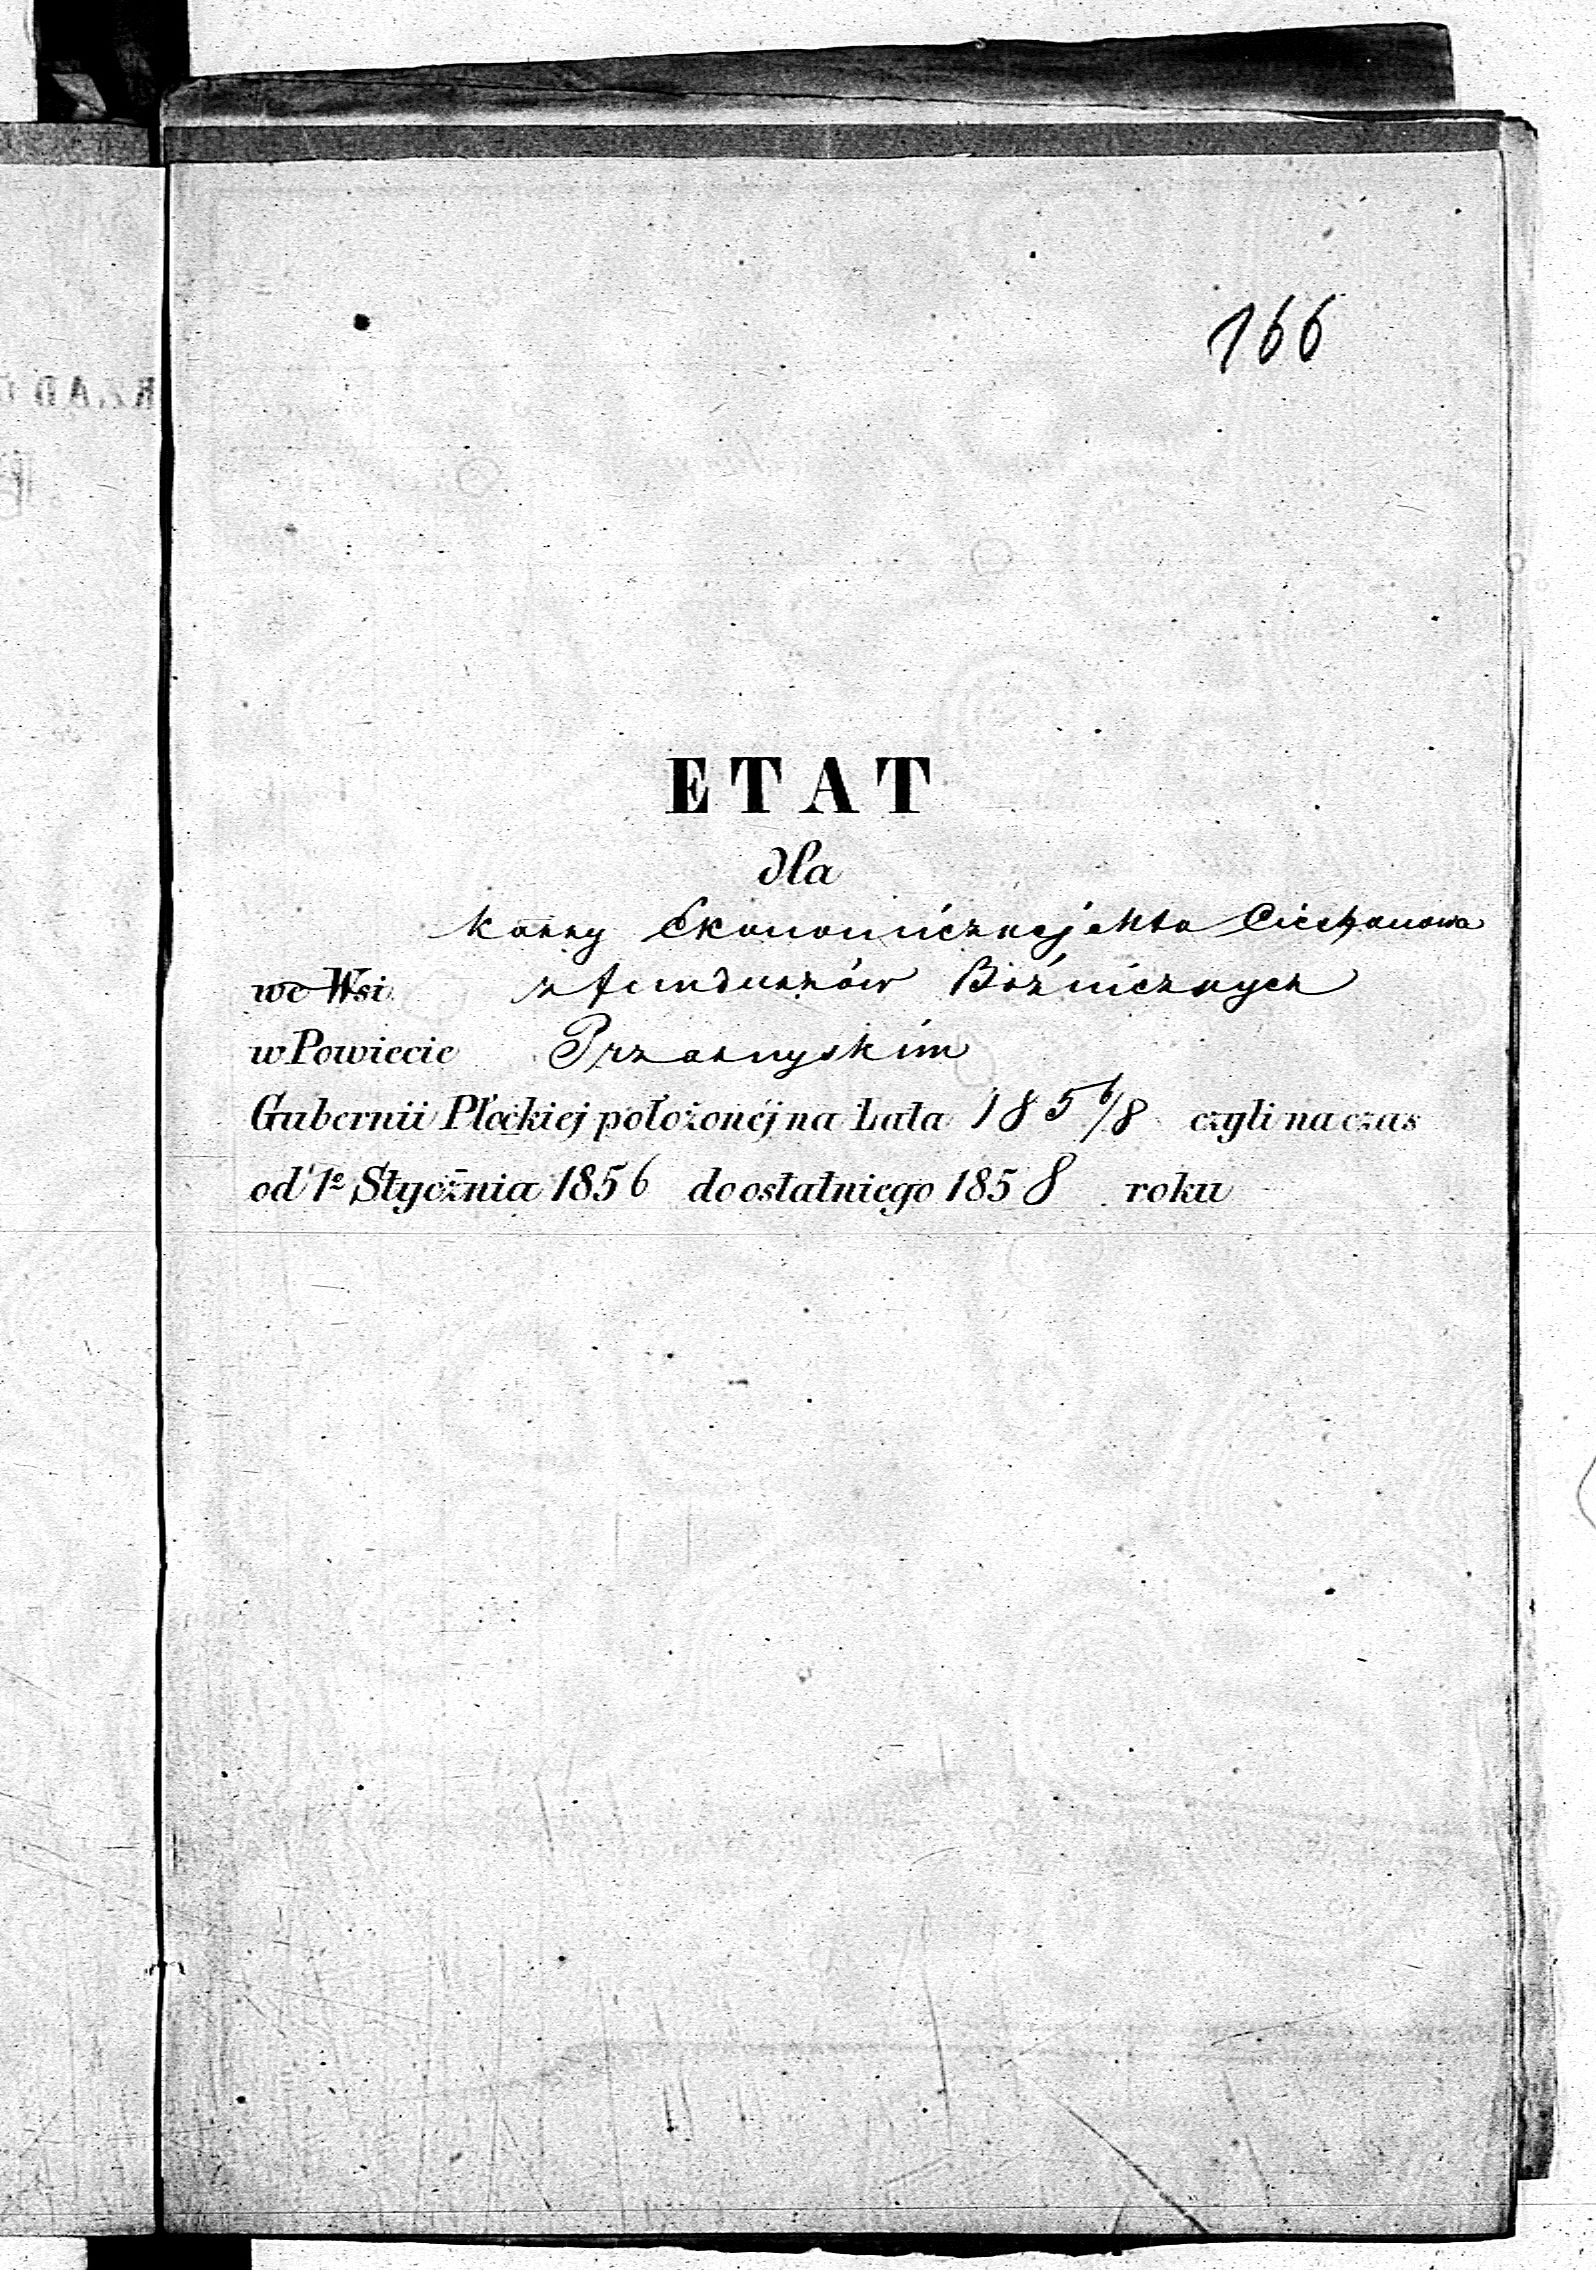 166
ETAT
dla
Kassy Ekonomicznej Mta Ciechanowa
we Wsi z funduszów Bóżnicznych
w Powiecie Przasnyskim
Gubernii Płockiej położonéj na Lata 185 6/8 czyli na czas
od 1º Stycznia 1856 do ostatniego 1858 roku